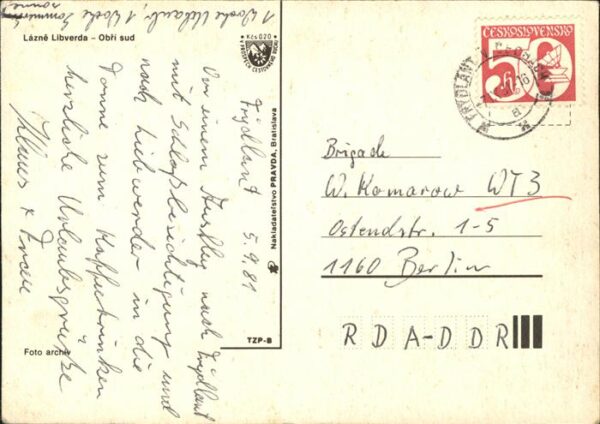 1 Woche Urlaub, 1 Woche Sommer-
sonne
Lázně Libverda – Obří sud
Kčs 0,20
Frýdlant 5. 9. 81
Von einem Ausflug nach Frýdlant
mit Schloßbesichtigung und
nach Liebwerder in die
Tonne zum Kaffeetrinken
herzliche Urlaubsgrüße
Klaus +
Foto archiv
Nakladateľstvo PRAVDA, Bratislava
TZP-B
ČESKOSLOVENSKO
50 h
FRÝDLANT V ČECHÁCH
Brigade
W. Komarow WT3
Ostendstr. 1-5
1160 Berlin
RDA-DDR